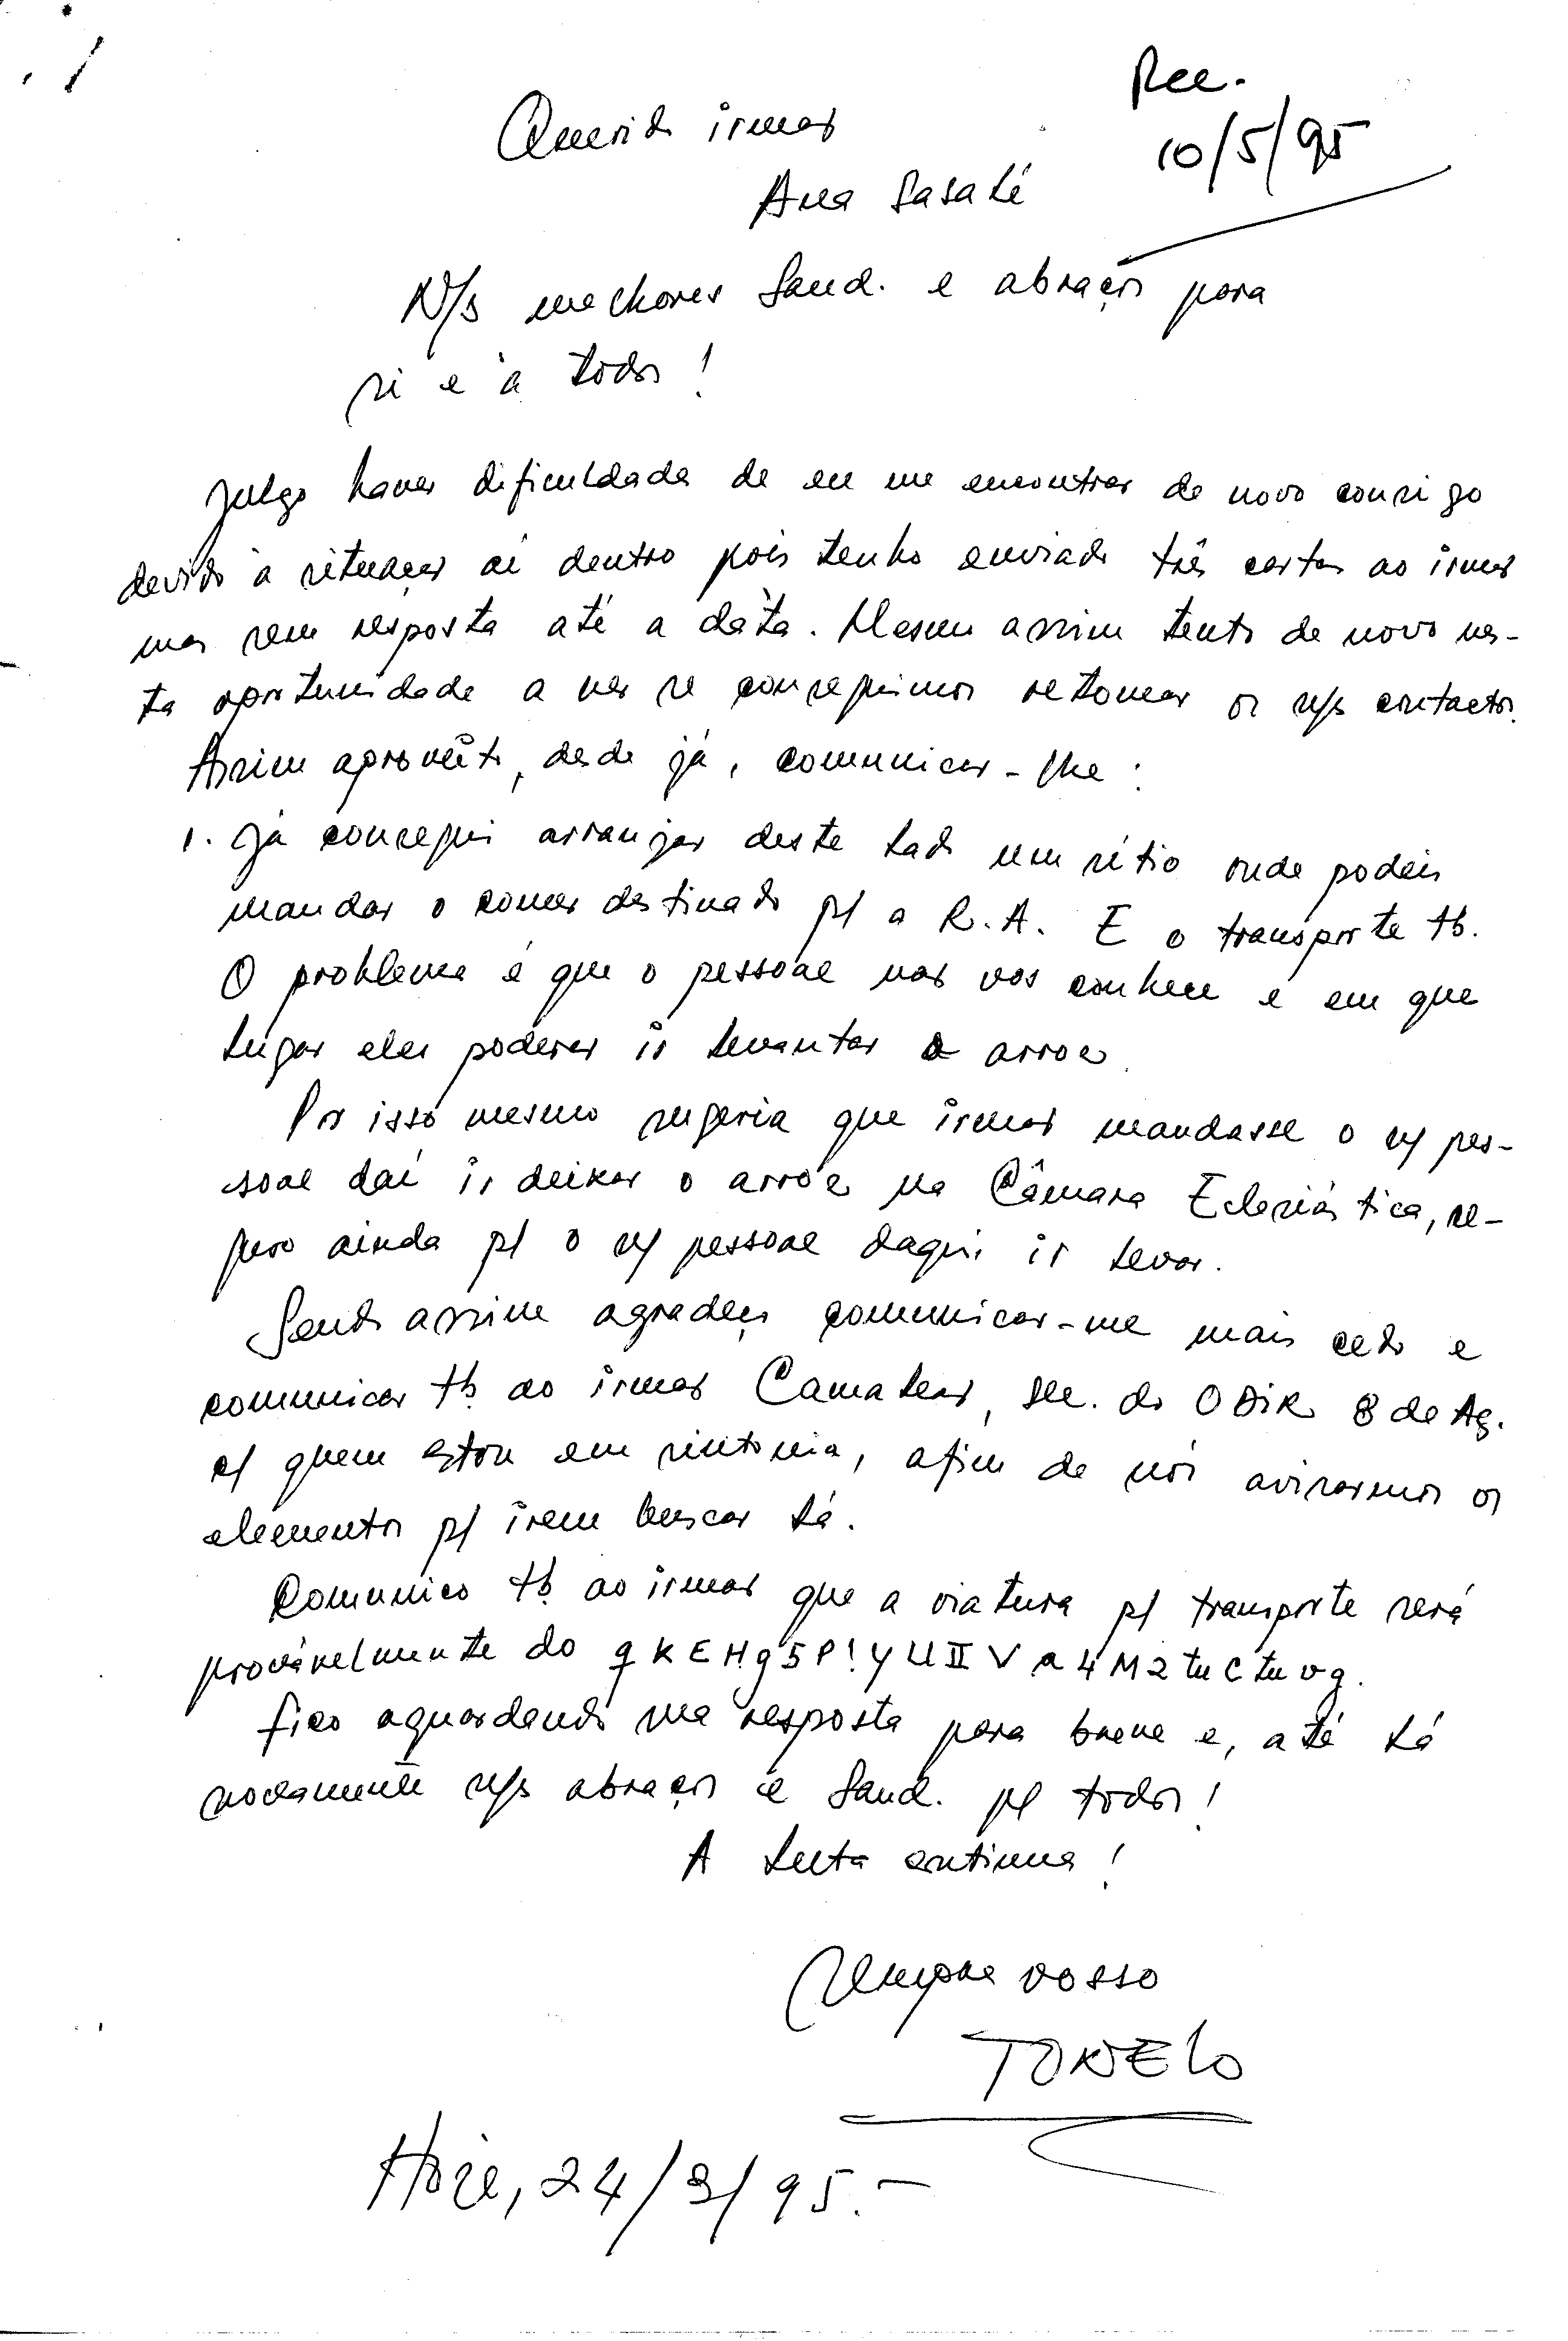 Rec.
10/5/95
Querido irmão
Ana Sasaté
N/s melhores Saud. e abraços para
si e à todos!
Julgo haver dificuldade de eu me encontrar de novo consigo
devido à situação aí dentro pois tenho enviado três cartas ao irmão
mas sem resposta até a dáta. Mesmo assim tento de novo nes-
ta oportunidade a ver se conseguimos retomar os n/s contactos.
Assim aproveito, desde já, comunicar-lhe:
1. Já consegui arranjar deste lado um sítio onde podeis
mandar o comer destinado p/ a R.A. E o transporte tb.
O problema é que o pessoal não vos conhece e em que
lugar eles poderão ir levantar o arroz.
Por isso mesmo sugeria que irmão mandasse o v/ pes-
soal daí ir deixar o arrôz na Câmara Eclesiástica, se-
guro ainda p/ o n/ pessoal daqui ir levar.
Sendo assim agradeço comunicar-me mais cedo e
comunicar tb. ao irmão Camaleão, Sec. do ODIR 8 de Ag.
c/ quem estou em sintonia, afim de nós avisarmos os
elementos p/ irem buscar lá.
Comunico tb. ao irmão que a viatura p/ transporte será
provávelmente do q K E H g 5 P ! y U II V a 4 M 2 tu C tu v g.
Fico aguardando sua resposta para breve e, até lá
novamente n/s abraços e Saud. p/ todos!
A luta continua!
Sempre vosso
TONELO
Hoje, 24/3/95.-